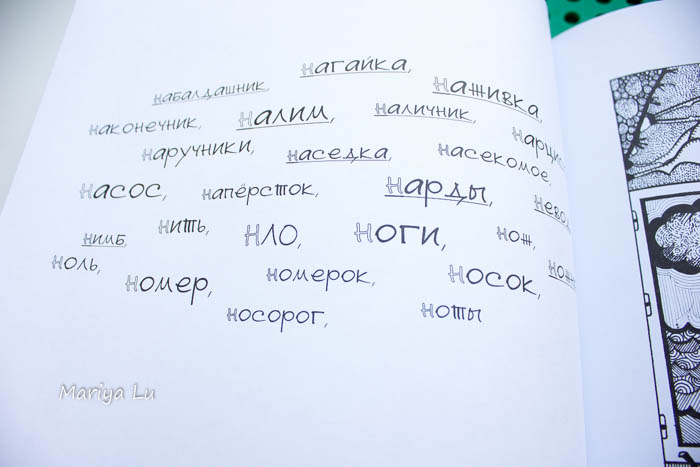 нагайка,
набалдашник, наживка,
наконечник, налим, наличник,
наручники, наседка, насекомое,
насос, напёрсток, нарды,
нимб, нить, НЛО, ноги, нож,
ноль, номер, номерок, носок,
носорог, ноты
Mariya Lu